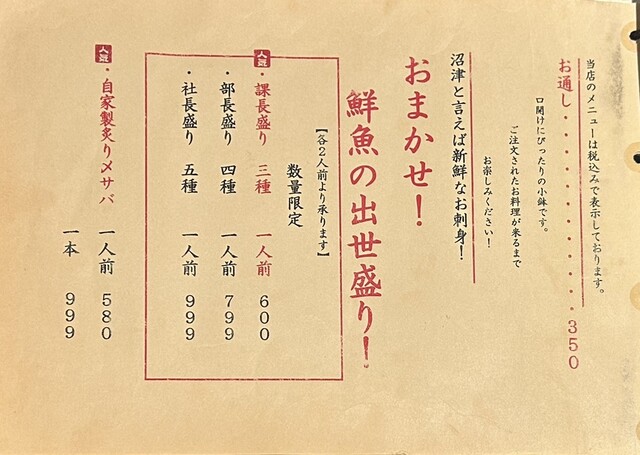 当店のメニューは税込みで表示しております。
お通し・・・・・・・・・・・・・・350
口開けにぴったりの小鉢です。
ご注文されたお料理が来るまで
お楽しみください!
沼津と言えば新鮮なお刺身!
おまかせ!
鮮魚の出世盛り!
【各2人前より承ります】
数量限定
人気・課長盛り 三種 一人前 600
・部長盛り 四種 一人前 799
・社長盛り 五種 一人前 999
人気・自家製炙り〆サバ 一人前 580
一本 999